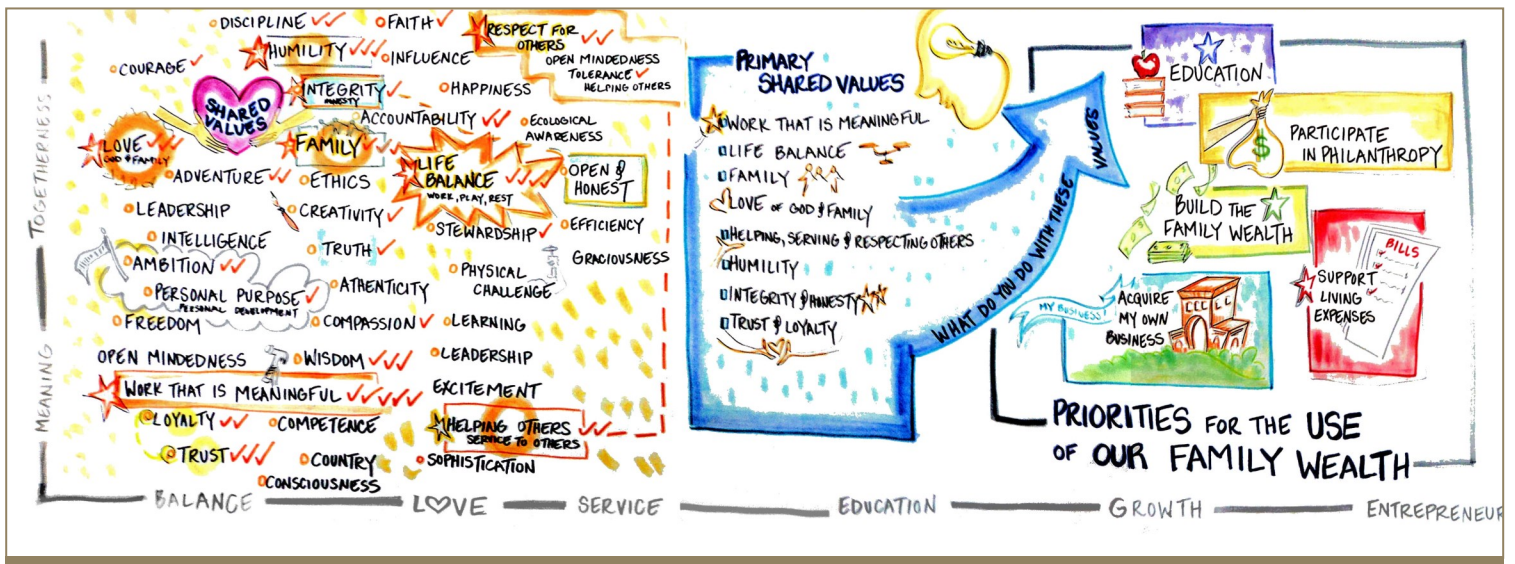 TOGETHERNESS
MEANING
DISCIPLINE
FAITH
HUMILITY
INFLUENCE
RESPECT FOR
OTHERS
OPEN MINDEDNESS
TOLERANCE
HELPING OTHERS
COURAGE
SHARED
VALUES
INTEGRITY
HONESTY
HAPPINESS
ACCOUNTABILITY
ECOLOGICAL
AWARENESS
LOVE
GOD & FAMILY
FAMILY
LIFE
BALANCE
WORK, PLAY, REST
OPEN &
HONEST
ADVENTURE
ETHICS
LEADERSHIP
CREATIVITY
STEWARDSHIP
EFFICIENCY
INTELLIGENCE
TRUTH
GRACIOUSNESS
AMBITION
PHYSICAL
CHALLENGE
PERSONAL PURPOSE
PERSONAL DEVELOPMENT
ATHENTICITY
FREEDOM
COMPASSION
LEARNING
OPEN MINDEDNESS
WISDOM
LEADERSHIP
WORK THAT IS MEANINGFUL
EXCITEMENT
LOYALTY
COMPETENCE
HELPING OTHERS
SERVICE TO OTHERS
TRUST
COUNTRY
SOPHISTICATION
CONSCIOUSNESS
PRIMARY
SHARED VALUES
WORK THAT IS MEANINGFUL
LIFE BALANCE
FAMILY
LOVE OF GOD & FAMILY
HELPING, SERVING & RESPECTING OTHERS
HUMILITY
INTEGRITY & HONESTY
TRUST & LOYALTY
WHAT DO YOU DO WITH THESE VALUES
EDUCATION
PARTICIPATE
IN PHILANTHROPY
$
BUILD THE
FAMILY WEALTH
BILLS
SUPPORT
LIVING
EXPENSES
MY BUSINESS!
ACQUIRE
MY OWN
BUSINESS
PRIORITIES FOR THE USE
OF OUR FAMILY WEALTH
BALANCE
LOVE
SERVICE
EDUCATION
GROWTH
ENTREPRENEUR